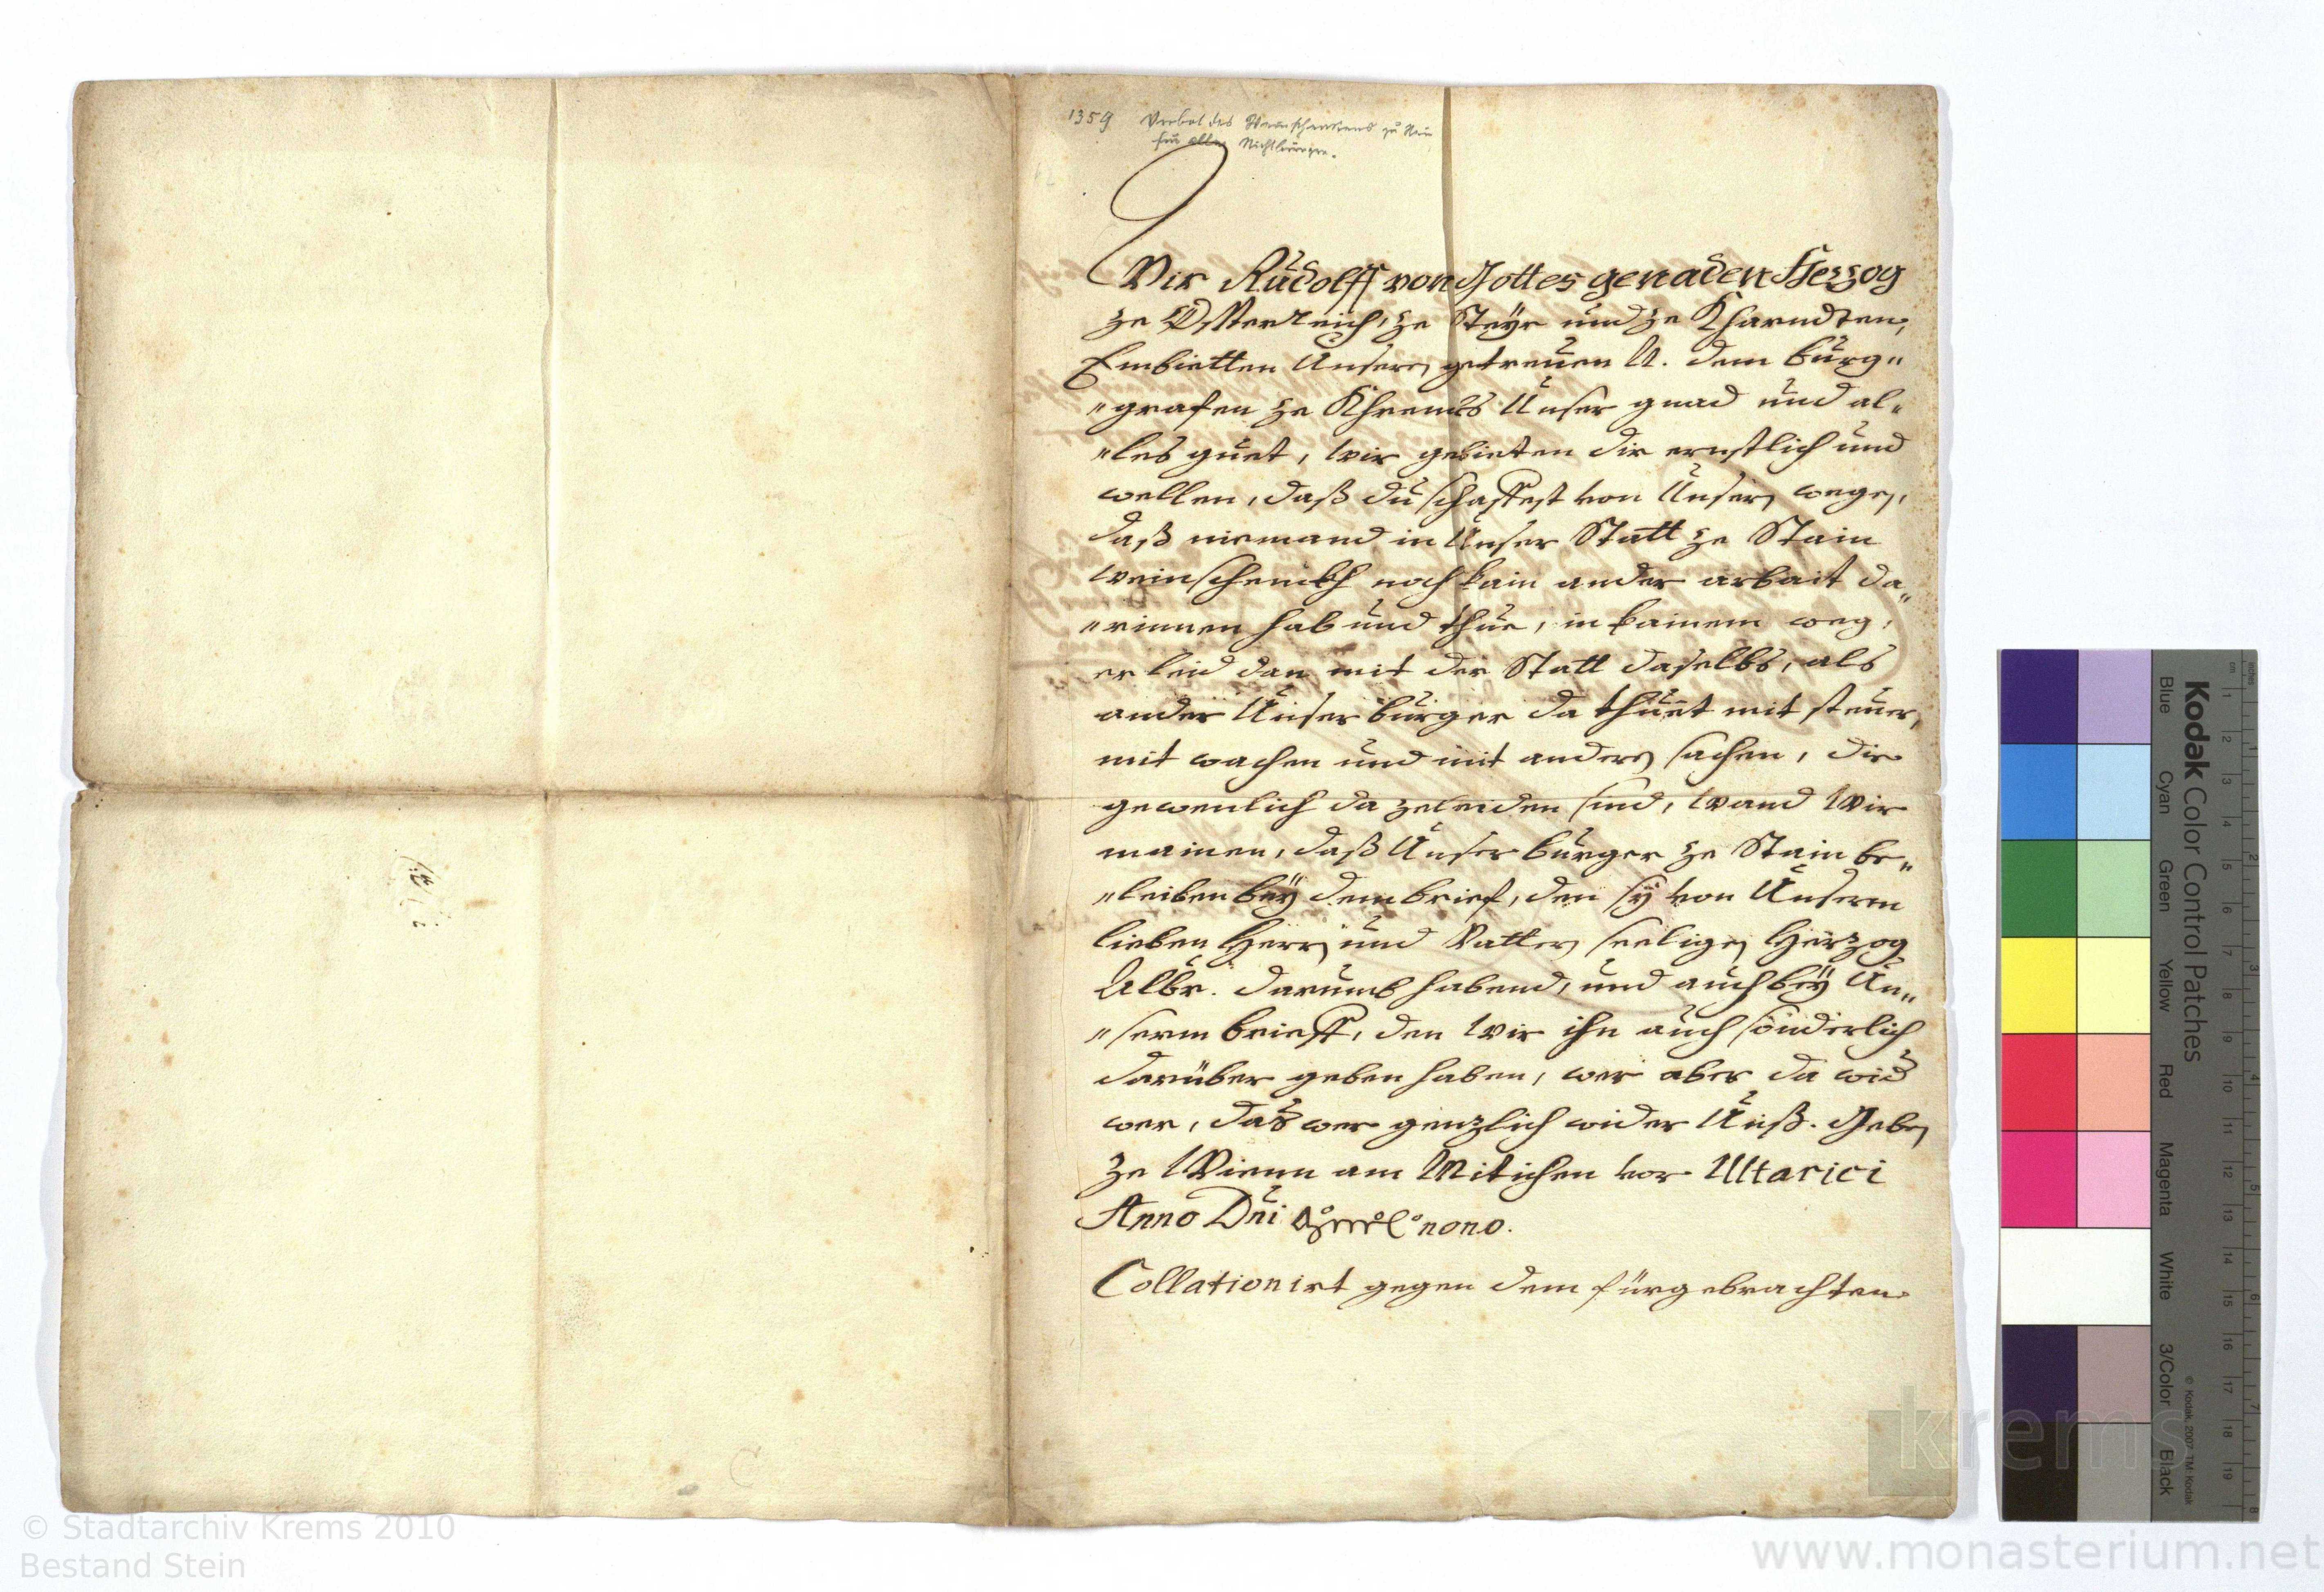 1359 Verbot des Weinschankens zu Stein
für alle Nichtbürger.
Wir Rudolff von Gottes genaden Herzog
ze Össterreich, ze Steyr und ze Kharndten,
Embietten Unsern getreuen N. dem burg„
„grafen ze Khrembs Unser gnad und al„
„les guet, wir gebieten dir ernstlich und
wellen, daß du schaffest von Unsern wegen,
daß niemand in Unser Statt ze Stain
weinschenckh noch kain ander arbait da„
„rinnen hab und thue, in kainem weg,
er leid dan mit der Statt daselbs, als
ander Unser burger da thuet mit steuer,
mit wachen und mit andern sachen, die
gewenlich da zeleiden sind, wand Wir
mainen, daß Unser burger ze Stain be„
„leiben bey dem brief, den sy von Unserm
lieben Herrn und Vattern seeligen Herzog
Albr. darumb habend, und auch bey Un„
„serm brieff, den Wir ihn auch sonderlich
darüber geben haben, wer aber da wid
wer, das wer genzlich wider Unß. Geben
ze Wienn am Mitichen vor Ultarici
Anno Dni nono.
Collationirt gegen dem fürgebrachten
Kodak Color Control Patches
Blue Cyan Green Yellow Red Magenta White 3/Color Black
© Kodak, 2007 TM: Kodak
inches 1 2 3 4 5 6 7 8
cm 1 2 3 4 5 6 7 8 9 10 11 12 13 14 15 16 17 18 19
krems
© Stadtarchiv Krems 2010
Bestand Stein
www.monasterium.net